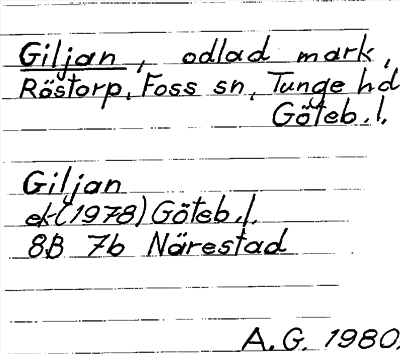 Giljan, odlad mark,
Röstorp, Foss sn, Tunge hd
Göteb.l.
Giljan
ek (1978) Göteb.l.
8B 7b Närestad
A.G. 1980.